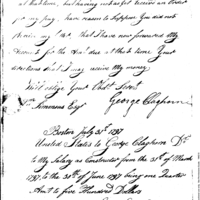 at that time, but having not yet receive an Order
for my pay, have reason to suppose you did not
receive my L that I have now forwarded My
Account for the due at this time. Your
directions that I may receive My money
Will oblige Your Obdt. Servt.
George Claghorn
Wm. Simmons Esqr.
Boston July 31st 1797
United States to George Claghorn Dr.
To My Salary as Constructor from the 31st of March
1797 to the 30th of June 1797 being one Quarter
Amt. to five Hundred Dollars